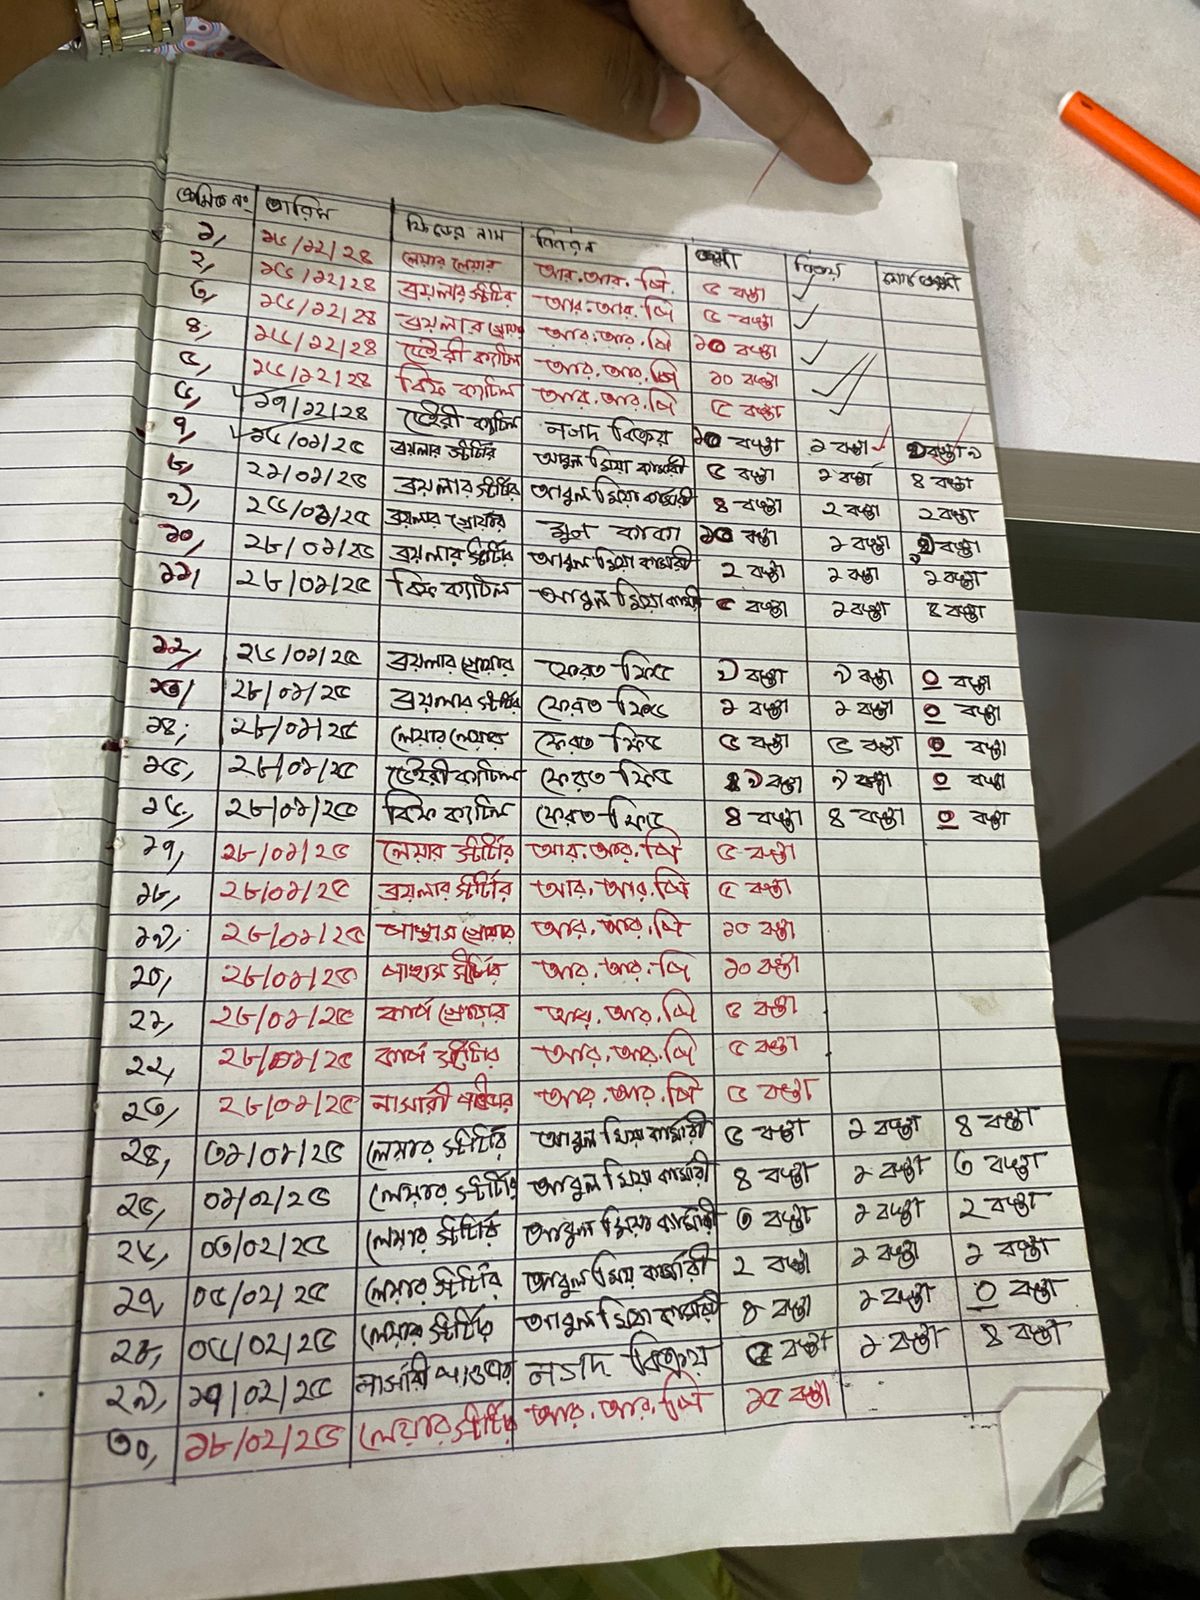 ক্রমিক নং তারিখ ফিডের নাম বিবরন জমা বিক্রয় মোট জমা
১, ১৫/১২/২৪ লেয়ার লেয়ার আর.আর.পি. ৫ বস্তা ✓
২, ১৫/১২/২৪ ব্রয়লার স্টার্টার আর.আর.পি ৫ বস্তা ✓
৩, ১৫/১২/২৪ ব্রয়লার গ্রোয়ার আর.আর.পি ১০ বস্তা ✓
৪, ১৫/১২/২৪ ডেইরী ক্যাটল আর.আর.পি ১০ বস্তা ✓
৫, ১৫/১২/২৪ বিফ ক্যাটল আর.আর.পি ৫ বস্তা ✓
৬, ১৭/১২/২৪ ডেইরী ক্যাটল নগদ বিক্রয় ১০ বস্তা ১ বস্তা ৯ বস্তা
৭, ১৫/০১/২৫ ব্রয়লার স্টার্টার আবুল মিয়া কামারী ৫ বস্তা ১ বস্তা ৪ বস্তা
৮, ২১/০১/২৫ ব্রয়লার স্টার্টার আবুল মিয়া কামারী ৪ বস্তা ২ বস্তা ২ বস্তা
৯, ২৫/০১/২৫ ব্রয়লার গ্রোয়ার কাকা ১০ বস্তা ১ বস্তা ৯ বস্তা
১০, ২৮/০১/২৫ ব্রয়লার স্টার্টার আবুল মিয়া কামারী ২ বস্তা ১ বস্তা ১ বস্তা
১১, ২৮/০১/২৫ বিফ ক্যাটল আবুল মিয়া কামারী ৫ বস্তা ১ বস্তা ৪ বস্তা
১২, ২৮/০১/২৫ ব্রয়লার গ্রোয়ার ফেরত ফিড ৯ বস্তা ৯ বস্তা ০ বস্তা
১৩, ২৮/০১/২৫ ব্রয়লার স্টার্টার ফেরত ফিড ১ বস্তা ১ বস্তা ০ বস্তা
১৪, ২৮/০১/২৫ লেয়ার লেয়ার ফেরত ফিড ৫ বস্তা ৫ বস্তা ০ বস্তা
১৫, ২৮/০১/২৫ ডেইরী ক্যাটল ফেরত ফিড ৯ বস্তা ৯ বস্তা ০ বস্তা
১৬, ২৮/০১/২৫ বিফ ক্যাটল ফেরত ফিড ৪ বস্তা ৪ বস্তা ০ বস্তা
১৭, ২৮/০১/২৫ লেয়ার স্টার্টার আর.আর.পি ৫ বস্তা
১৮, ২৮/০১/২৫ ব্রয়লার স্টার্টার আর.আর.পি ৫ বস্তা
১৯, ২৮/০১/২৫ পাঙ্গাস গ্রোয়ার আর.আর.পি ১০ বস্তা
২০, ২৮/০১/২৫ পাঙ্গাস স্টার্টার আর.আর.পি ১০ বস্তা
২১, ২৮/০১/২৫ কার্প গ্রোয়ার আর.আর.পি ৫ বস্তা
২২, ২৮/০১/২৫ কার্প স্টার্টার আর.আর.পি ৫ বস্তা
২৩, ২৮/০১/২৫ নার্সারী পাউডার আর.আর.পি ৫ বস্তা
২৪, ৩১/০১/২৫ লেয়ার স্টার্টার আবুল মিয়া কামারী ৫ বস্তা ১ বস্তা ৪ বস্তা
২৫, ০১/০২/২৫ লেয়ার স্টার্টার আবুল মিয়া কামারী ৪ বস্তা ১ বস্তা ৩ বস্তা
২৬, ০৩/০২/২৫ লেয়ার স্টার্টার আবুল মিয়া কামারী ৩ বস্তা ১ বস্তা ২ বস্তা
২৭, ০৫/০২/২৫ লেয়ার স্টার্টার আবুল মিয়া কামারী ২ বস্তা ১ বস্তা ১ বস্তা
২৮, ০৬/০২/২৫ লেয়ার স্টার্টার আবুল মিয়া কামারী বস্তা ১ বস্তা ০ বস্তা
২৯, ১৭/০২/২৫ নার্সারী পাওডার নগদ বিক্রয় ৫ বস্তা ১ বস্তা ৪ বস্তা
৩০, ১৮/০২/২৫ লেয়ার স্টার্টার আর.আর.পি ১৫ বস্তা